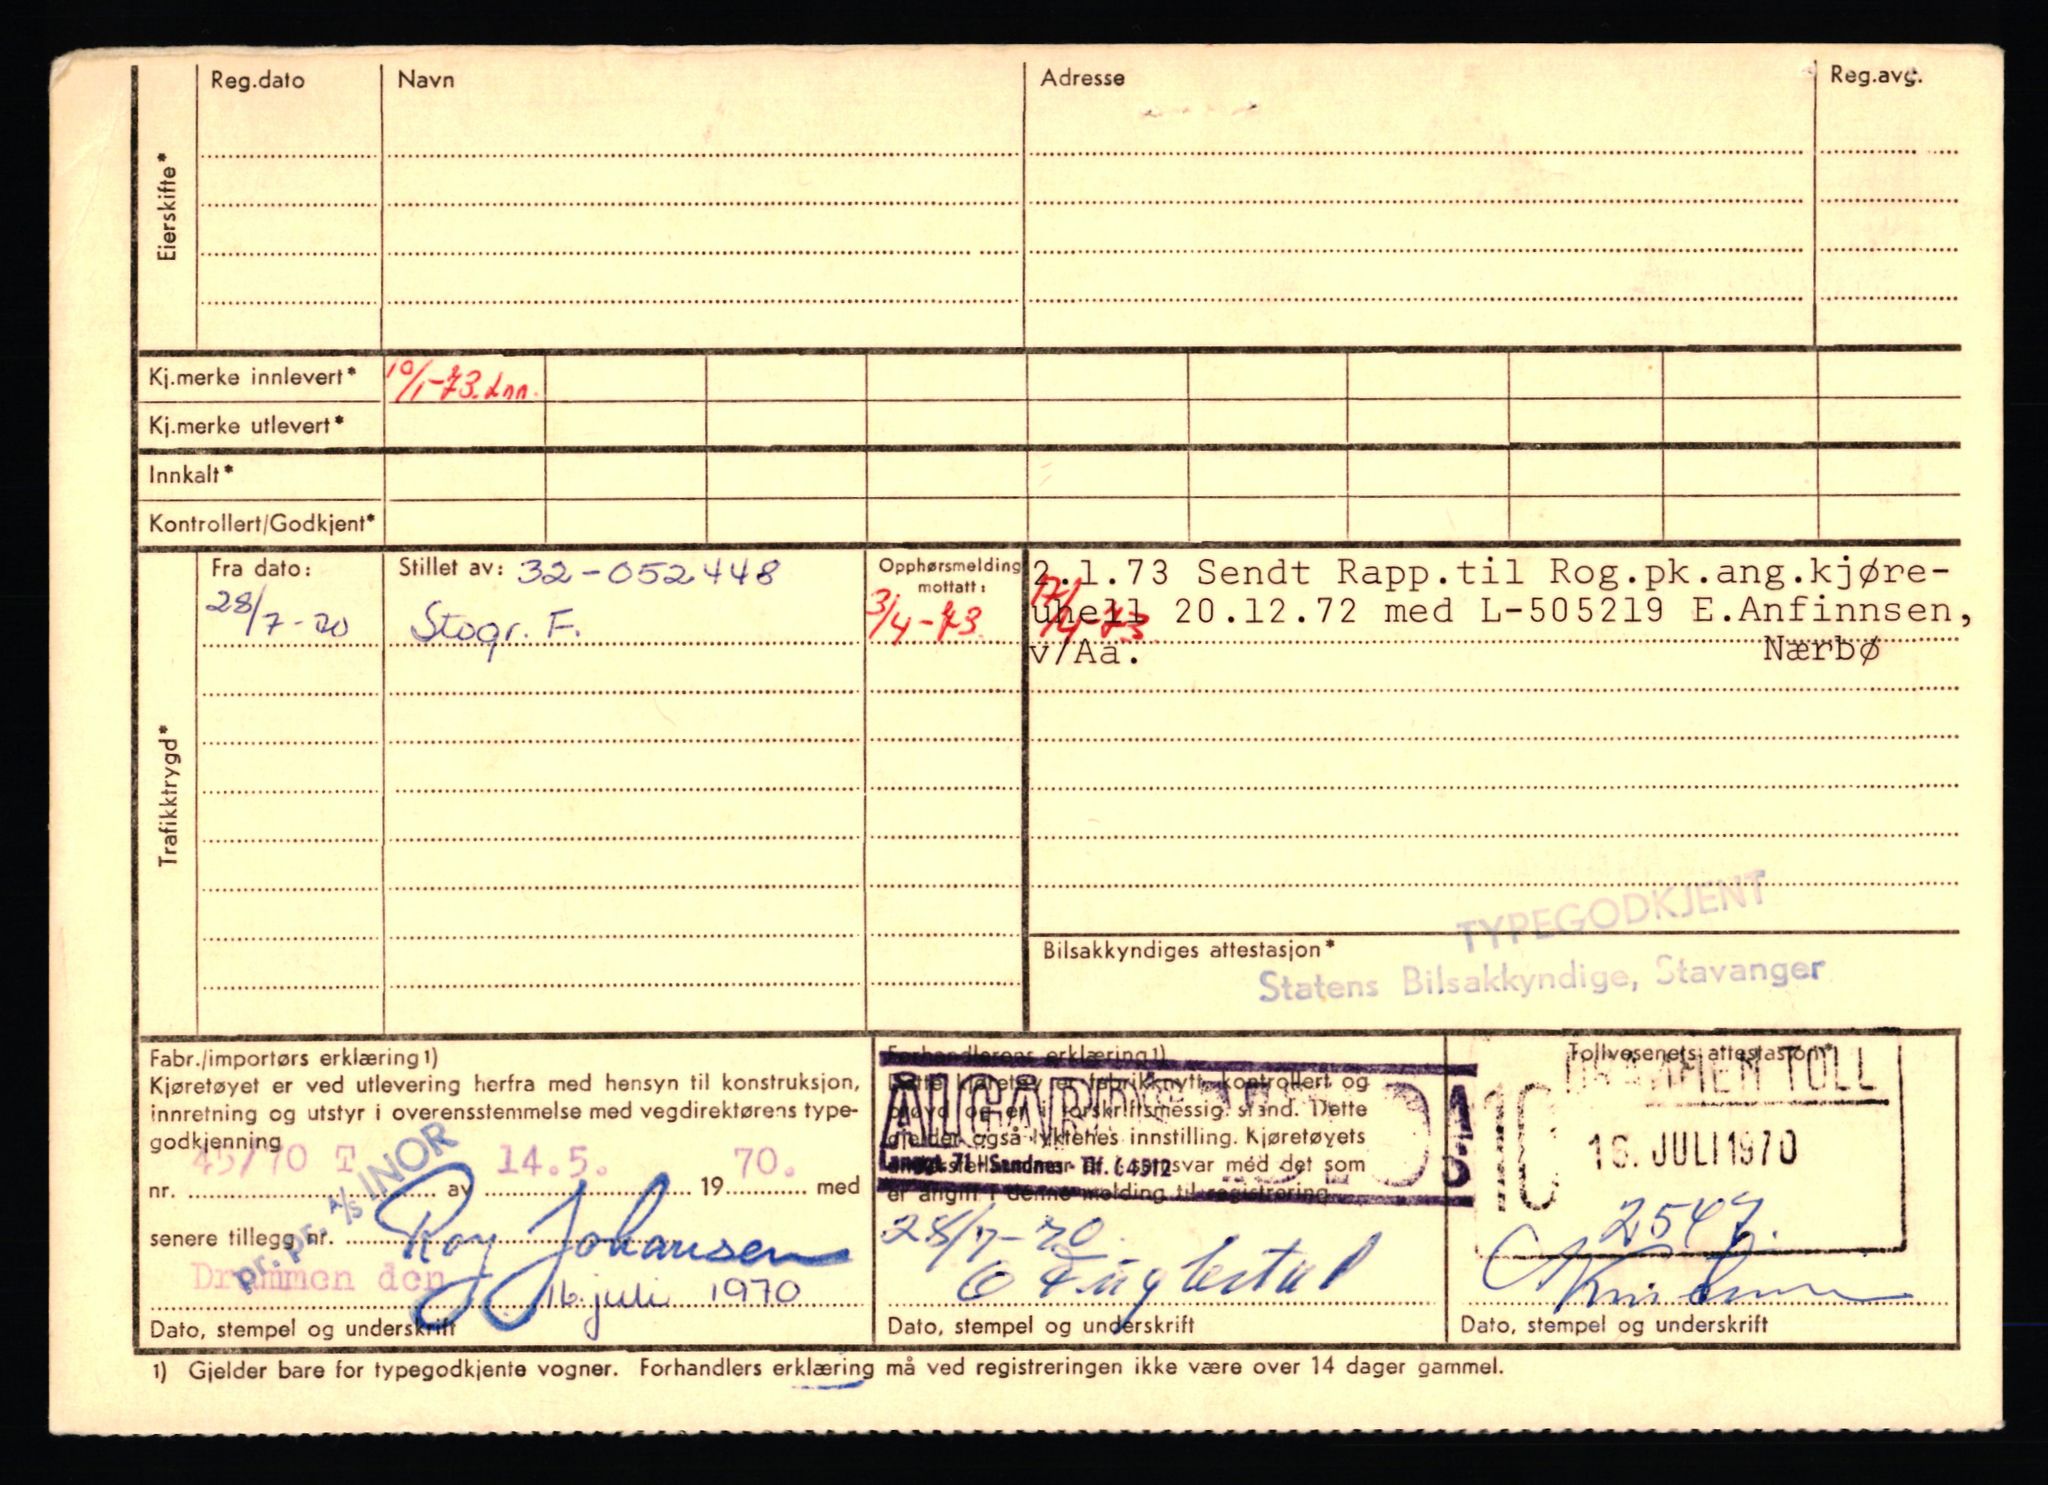 Reg.dato Navn Adresse Reg.avg.
Eierskifte*
Kj.merke innlevert* 10/1-73. Inn.
Kj.merke utlevert*
Innkalt*
Kontrollert/Godkjent*
Trafikktrygd*
Fra dato: Stillet av: 32-052448 Opphørsmelding mottatt:
28/7-70 Stogr. F. 3/4-73 17/4-73
2.1.73 Sendt Rapp.til Rog.pk.ang.kjøre-
uhell 20.12.72 med L-505219 E.Anfinnsen,
v/Aa. Nærbø
TYPEGODKJENT
Bilsakkyndiges attestasjon*
Statens Bilsakkyndige, Stavanger
Fabr./importørs erklæring 1)
Kjøretøyet er ved utlevering herfra med hensyn til konstruksjon,
innretning og utstyr i overensstemmelse med vegdirektørens type-
godkjenning
nr. 45/70 T av 14.5. 1970. med
senere tillegg nr.
pr. pr. A/S INOR
Roy Johansen
Drammen den 16. juli 1970
Dato, stempel og underskrift
Forhandlerens erklæring 1)
Dette kjøretøy er fabrikknytt, kontrollert og
prøvd og er i forskriftsmessig stand. Dette
gjelder også lyktenes innstilling. Kjøretøyets
er i samsvar med det som
er angitt i denne melding til registrering.
ÅLGÅRD
Langgt. 71 - Sandnes - Tlf. 64512
28/7-70
Dato, stempel og underskrift
Tollvesenets attestasjon*
DRAMMEN TOLL
10
16. JULI 1970
2547.
Dato, stempel og underskrift
1) Gjelder bare for typegodkjente vogner. Forhandlers erklæring må ved registreringen ikke være over 14 dager gammel.